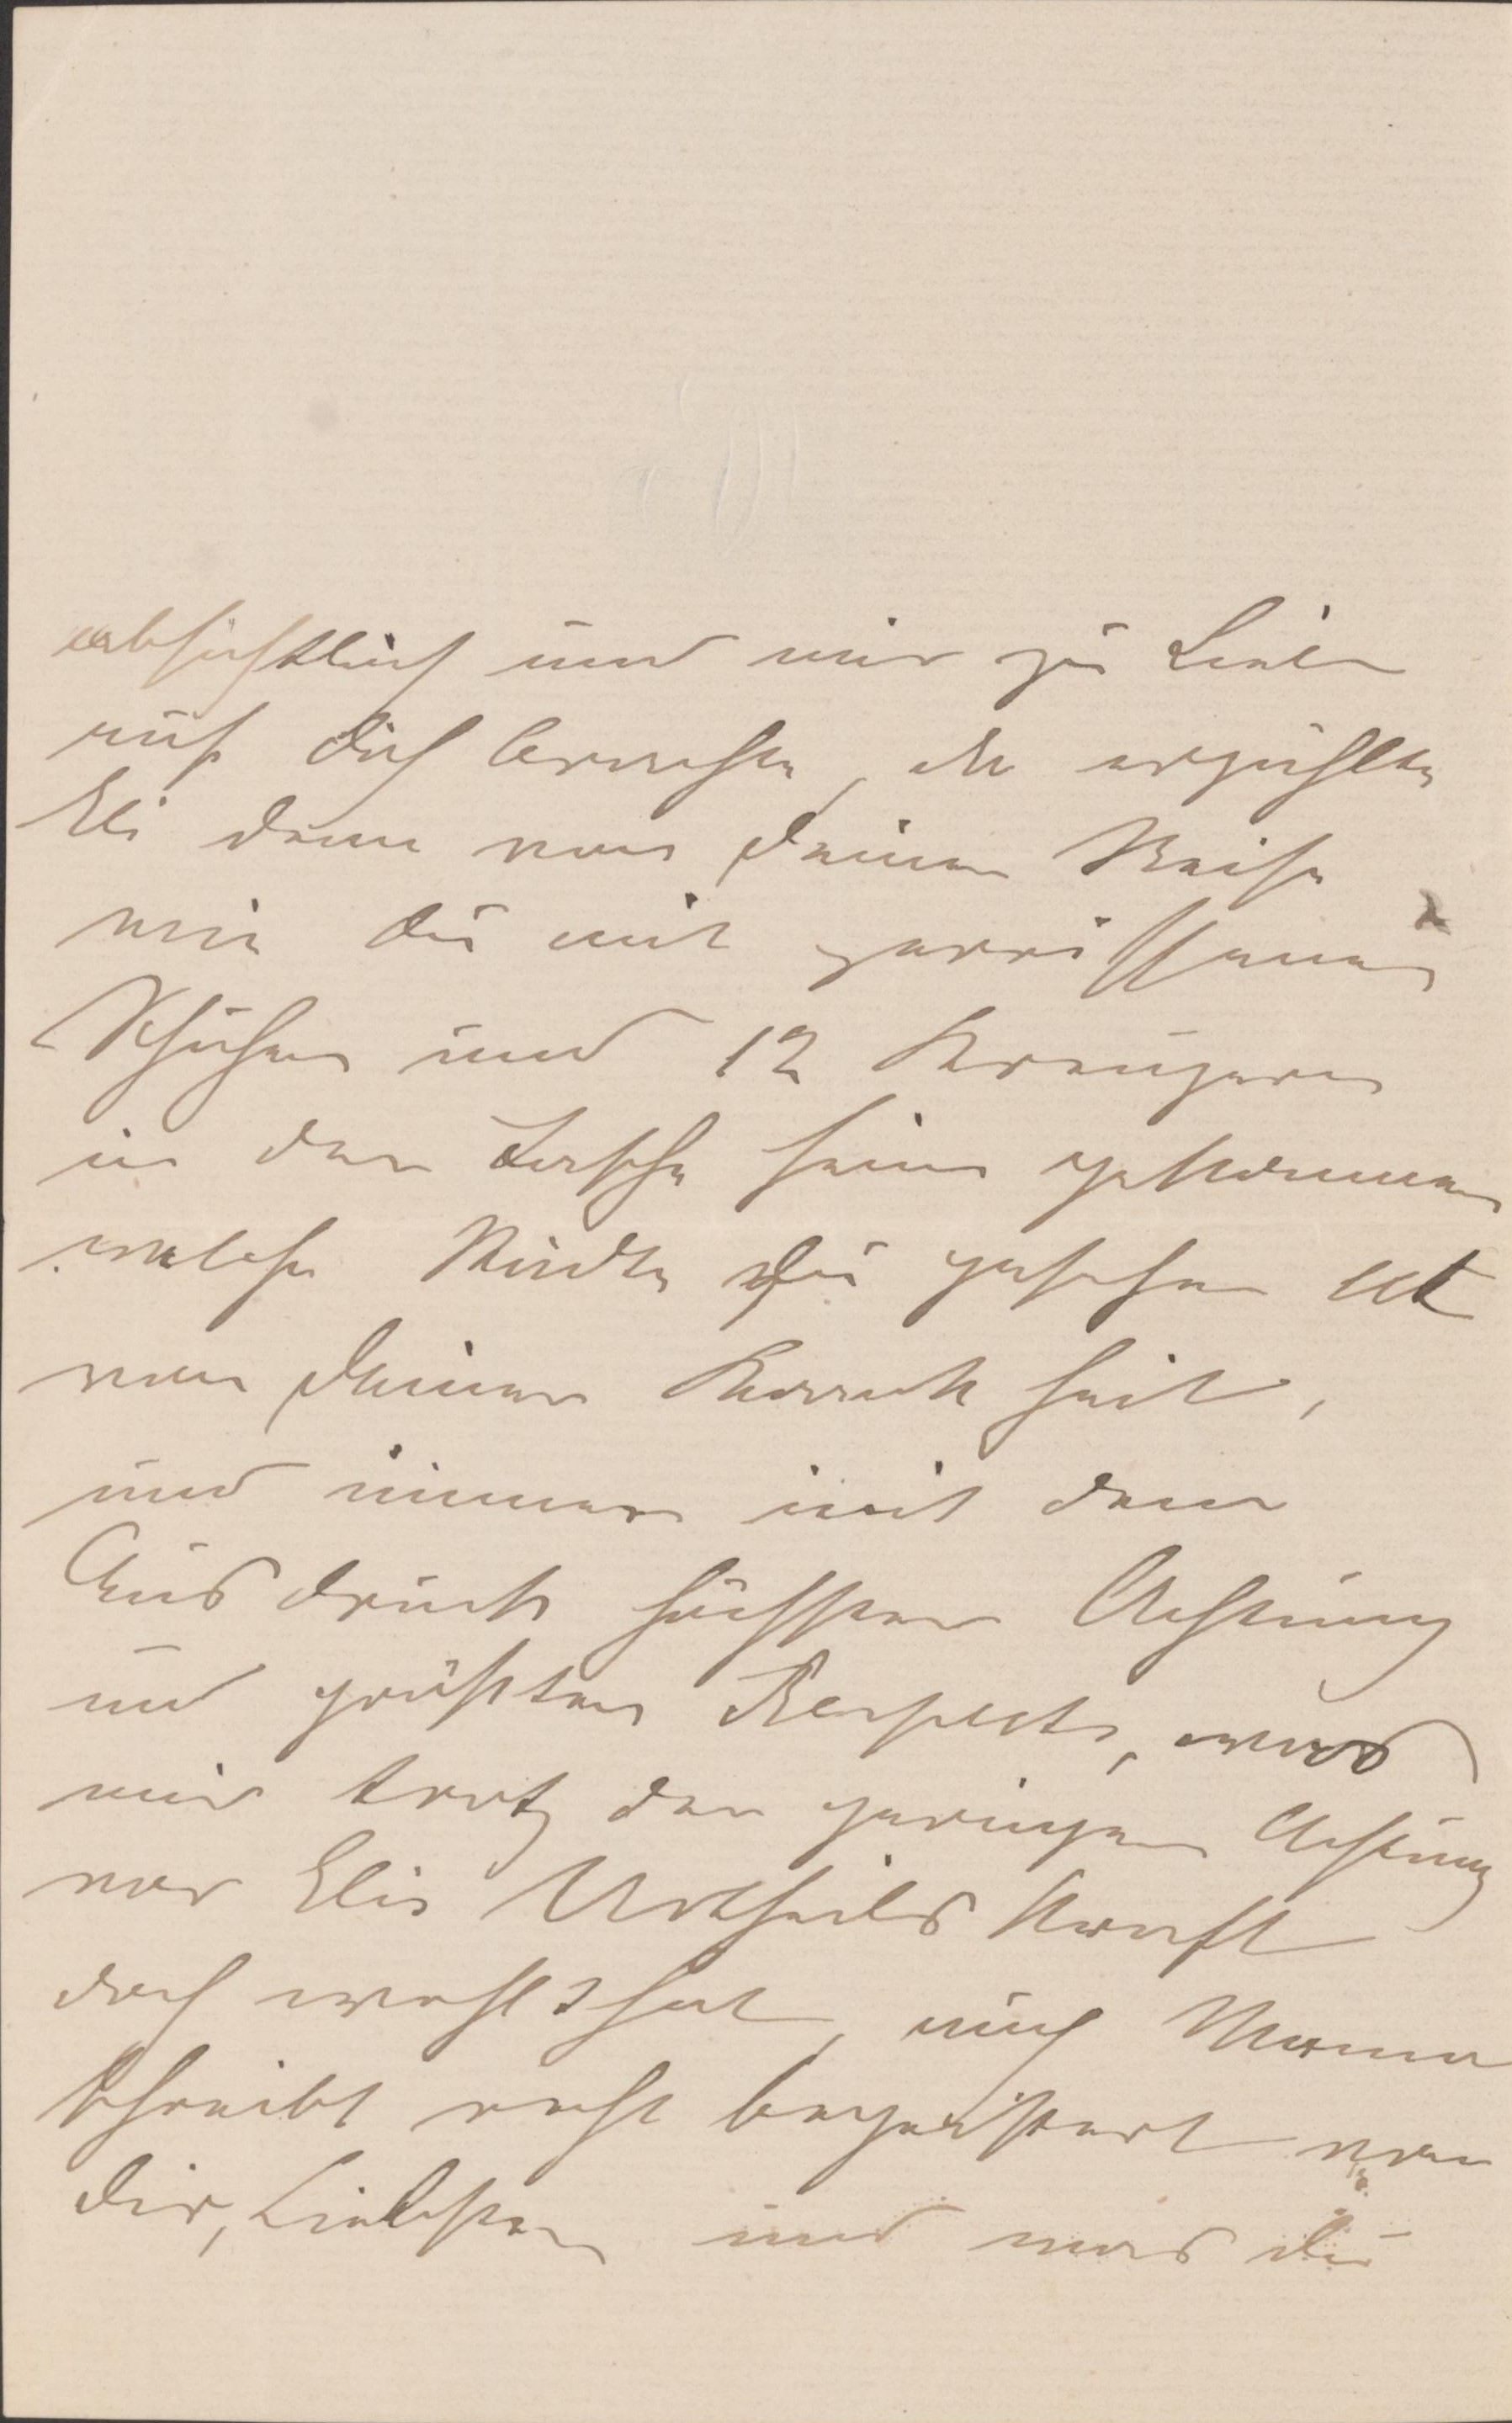 absichtlich und mir zu Liebe
auf dich brachte, da erzählte
Eli dann von deiner Reise
wie du mit zerrissenen
Schuhen und 12 Kreuzern
in der Tasche heim gekommen
welche Städte du gesehen etc
von deiner Krankheit,
und immer mit dem
Ausdruck höchster Achtung
und größten Respects, was
mir trotz der geringen Achtung
vor Elis Urtheilskraft
doch wohlthat, auch Mama
schreibt recht begeistert von
dir, Liebster und was du